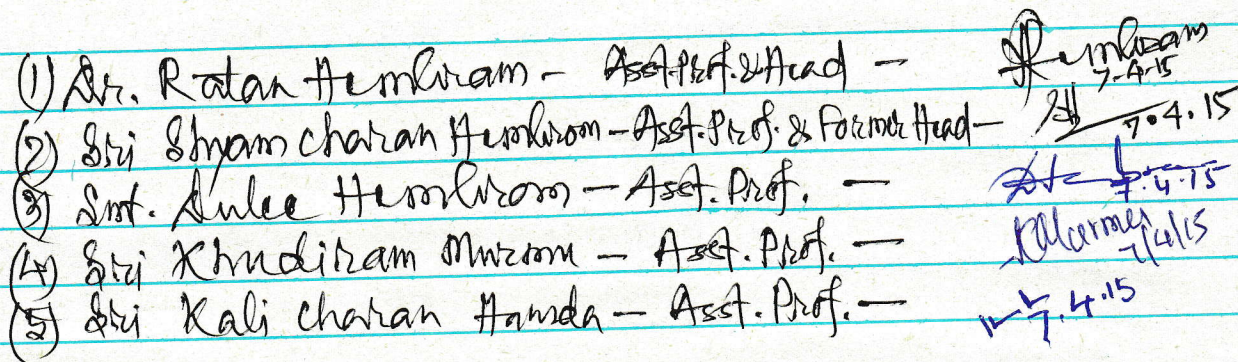 (1) Dr. Ratan Hembram - Asst. Prof. & Head - 7-4-15
(2) Sri Shyam Charan Hembrom - Asst. Prof. & Former Head - 7.4.15
(3) Smt. Dulee Hembrom - Asst. Prof. - 7.4.15
(4) Sri Khudiram Murmu - Asst. Prof. - 7/4/15
(5) Sri Kali Charan Hamsda - Asst. Prof. - 7.4.15